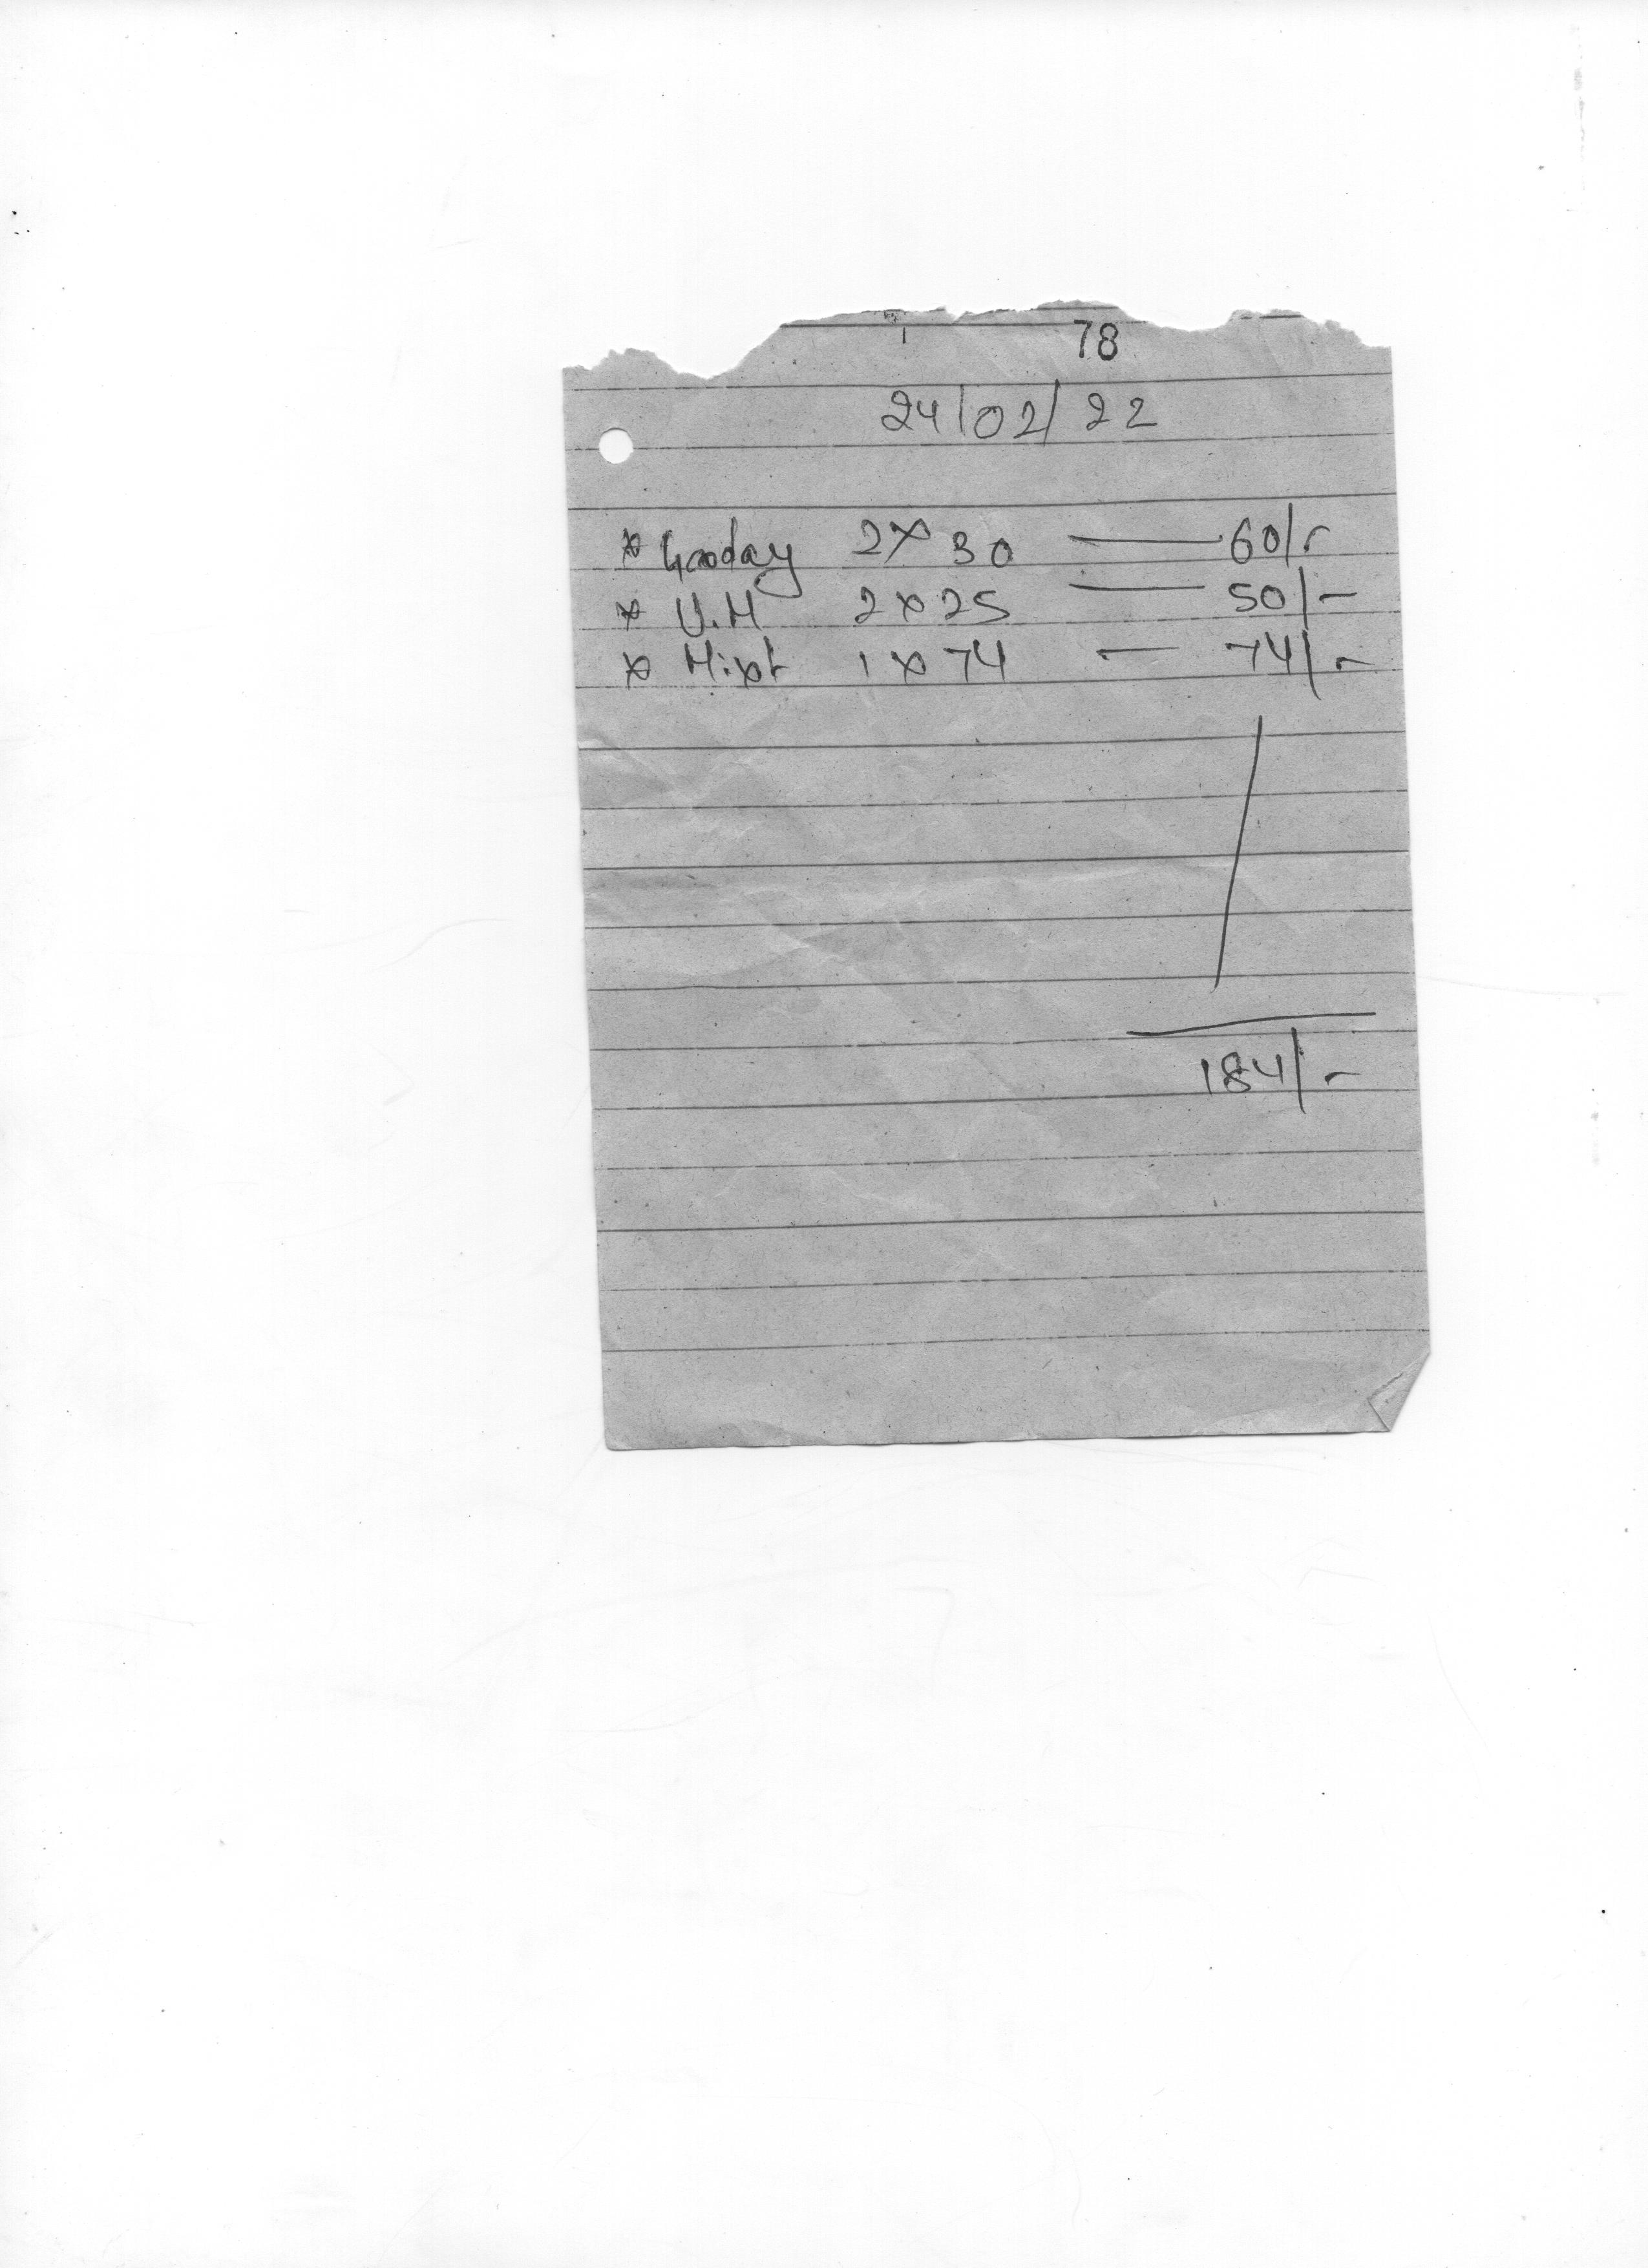 78
24/02/22
* Gooday 2 x 30 — 60/-
* U.H 2 x 25 — 50/-
* Mixt 1 x 74 — 74/-
184/-